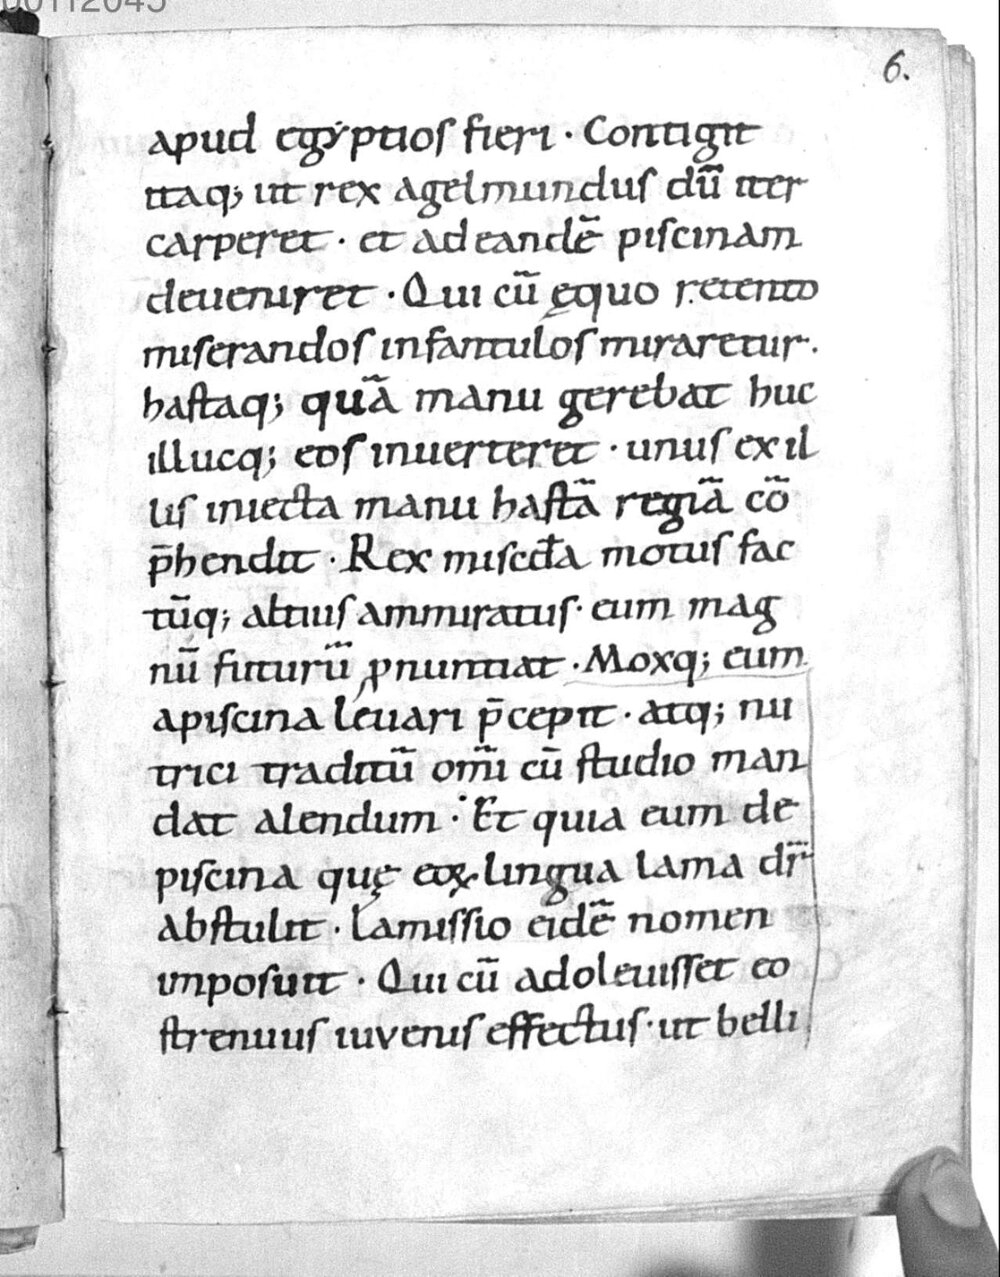 00112045
6.
apud egẏptios fieri · Contigit
itaq; ut rex agelmundus dũ iter
carperet · et ad eandẽ piscinam
deueniret · Qui cũ ęquo retento
miserandos infantulos miraretur ·
hastaq; quã manu gerebat huc
illucq; eos inuerteret · unus ex il
lis iniecta manu hastã regiã cõ
p̄hendit · Rex miscďa motus fac
tũq; altius ammiratus · eum mag
nũ futurũ ꝓnuntiat · Moxq; eum
apiscina leuari p̄cepit · atq; nu
trici traditũ om̄i cũ studio man
dat alendum · Et quia eum de
piscina quę eoꝝ lingua lama dr̄
abstulit · Lamissio eidẽ nomen
imposuit · Qui cũ adoleuisset eo
strenuus iuvenis effectus · ut belli